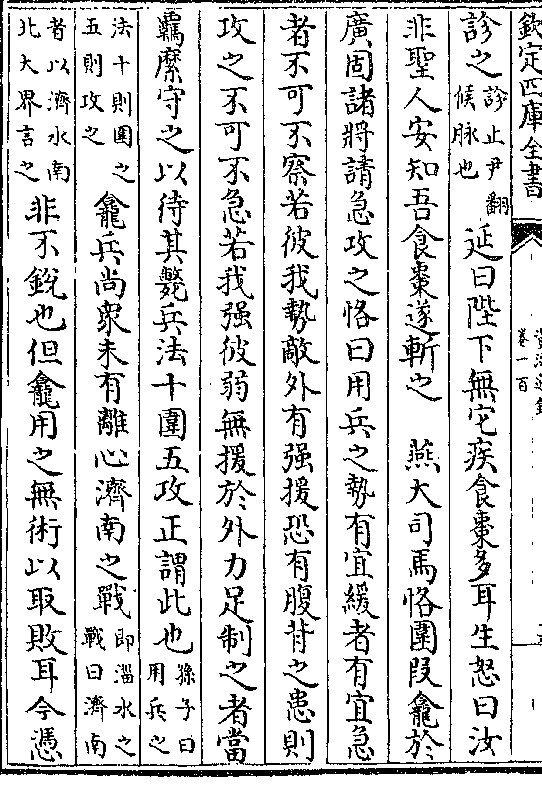 欽定四庫全書
資治通鑑
卷一百
診之診止尹翻候脉也延曰陛下無它疾食棗多耳生怒曰汝
非聖人安知吾食棗遂斬之 燕大司馬恪圍段龕於
廣固諸將請急攻之恪曰用兵之勢有宜緩者有宜急
者不可不察若彼我勢敵外有强援恐有腹背之患則
攻之不可不急若我强彼弱無援於外力足制之者當
羈縻守之以待其斃兵法十圍五攻正謂此也孫子曰用兵之
法十則圍之五則攻之龕兵尚衆未有離心濟南之戰即淄水之戰曰濟南
者以濟水南北大界言之非不銳也但龕用之無術以取敗耳今憑